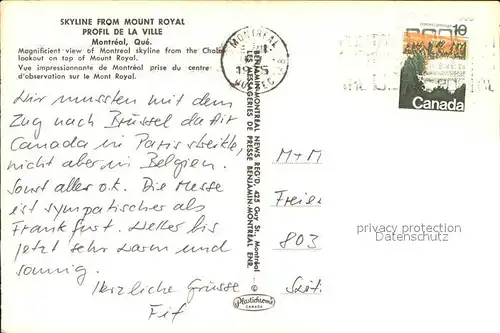 SKYLINE FROM MOUNT ROYAL
PROFIL DE LA VILLE
Montréal, Qué.
Magnificient view of Montreal skyline from the Chalet
lookout on top of Mount Royal.
Vue impressionnante de Montréal prise du centre
d'observation sur le Mont Royal.
Wir mussten mit dem
Zug nach Brüssel da Air
Canada in Paris streikte,
nicht aber in Belgien.
Sonst alles o.k. Die Messe
ist sympatischer als
Frankfurt. Wetter bis
jetzt sehr warm und
sonnig.
Herzliche Grüsse
Fif
BENJAMIN-MONTREAL NEWS REG'D, 425 Guy St., Montréal
LES MESSAGERIES DE PRESSE BENJAMIN-MONTRÉAL ENR.
Plastichrome
CANADA
MONTREAL
QUEBEC
10
Canada
M+M
Freie
803
privacy protection
Datenschutz